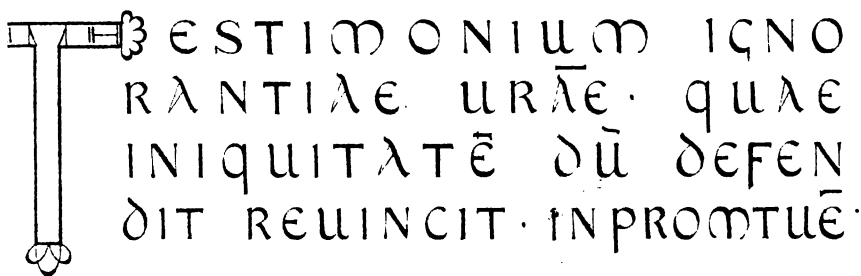 TESTIMONIUM IGNO
RANTIAE URĀE · QUAE
INIQUITATĒ DŪ DEFEN
DIT REUINCIT · INPROMTUĒ ·